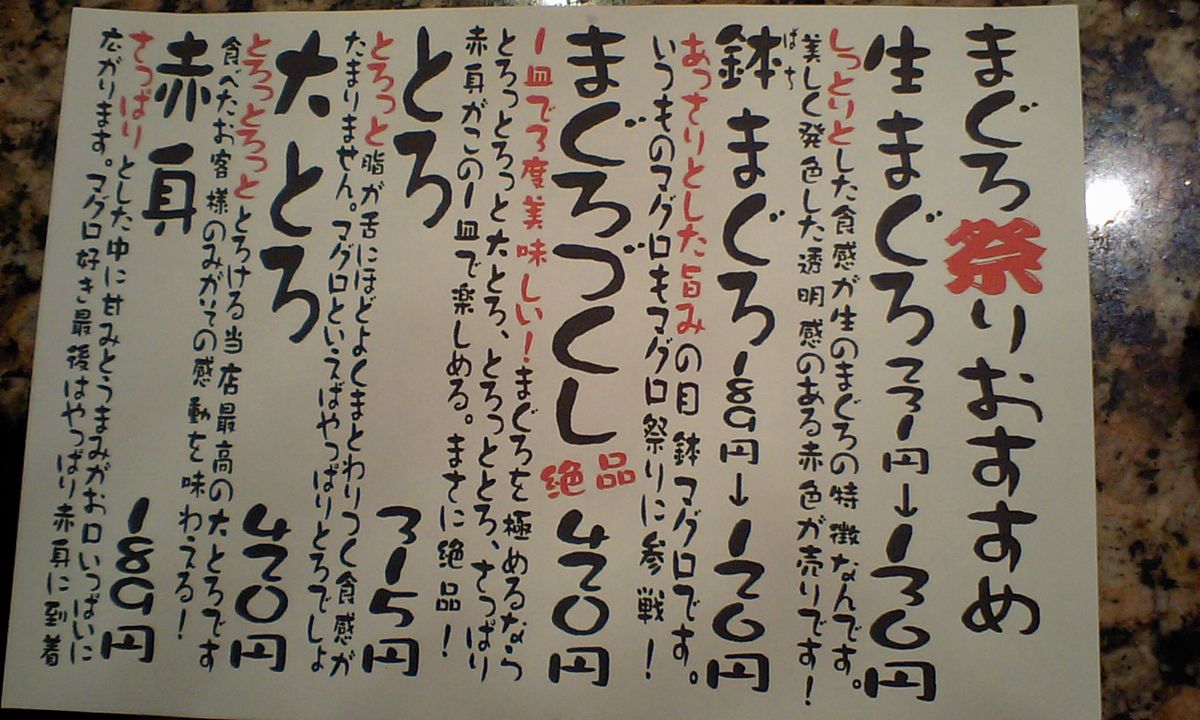 まぐろ祭りおすすめ
生まぐろ231円→130円
しっとりとした食感が生のまぐろの特徴なんです。
美しく発色した透明感のある赤色が売りです!
ばち
鉢まぐろ189円→120円
あっさりとした旨みの目鉢マグロです。
いつものマグロもマグロ祭りに参戦!
まぐろづくし絶品420円
1皿で3度美味しい!まぐろを極めるなら
とろっとろっと大とろ、とろっととろ、さっぱり
赤身がこの1皿で楽しめる。まさに絶品!
とろ 315円
とろっと脂が舌にほどよくまとわりつく食感が
たまりません。マグロといえばやっぱりとろでしょ
大とろ 420円
とろっとろっととろける当店最高の大とろです
食べたお客様のみがその感動を味わえる!
赤身 189円
さっぱりとした中に甘みとうまみがお口いっぱいに
広がります。マグロ好き最後はやっぱり赤身に到着